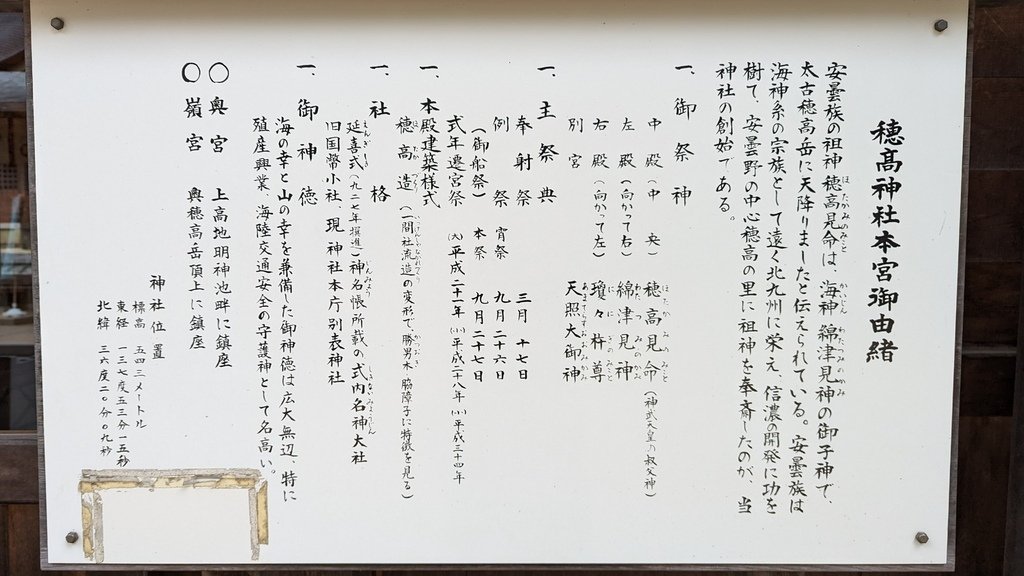 穂髙神社本宮御由緒
安曇族の祖神穂高見命は、海神綿津見神の御子神で、
太古穂高岳に天降りましたと伝えられている。安曇族は
海神系の宗族として遠く北九州に栄え、信濃の開発に功を
樹て、安曇野の中心穂高の里に祖神を奉斎したのが、当
神社の創始である。
一、御祭神
中殿(中央) 穂高見命(神武天皇の叔父神)
左殿(向かって右) 綿津見神
右殿(向かって左) 瓊々杵尊
別宮 天照大御神
一、主祭典
奉射祭 三月十七日
例祭 宵祭 九月二十六日
(御船祭) 本祭 九月二十七日
式年遷宮祭 (大)平成二十一年(小)平成二十八年(小)平成三十四年
一、本殿建築様式
穂高造(一間社流造の変形で、勝男木、脇障子に特徴を見る)
一、社格
延喜式(九二七年撰進)神名帳所載の式内名神大社
旧国幣小社、現神社本庁別表神社
一、御神徳
海の幸と山の幸を兼備した御神徳は広大無辺、特に
殖産興業、海陸交通安全の守護神として名高い。
○奥宮 上高地明神池畔に鎮座
○嶺宮 奥穂高岳頂上に鎮座
神社位置
標高 五四三メートル
東経 一三七度五三分一五秒
北緯 三六度二〇分〇九秒